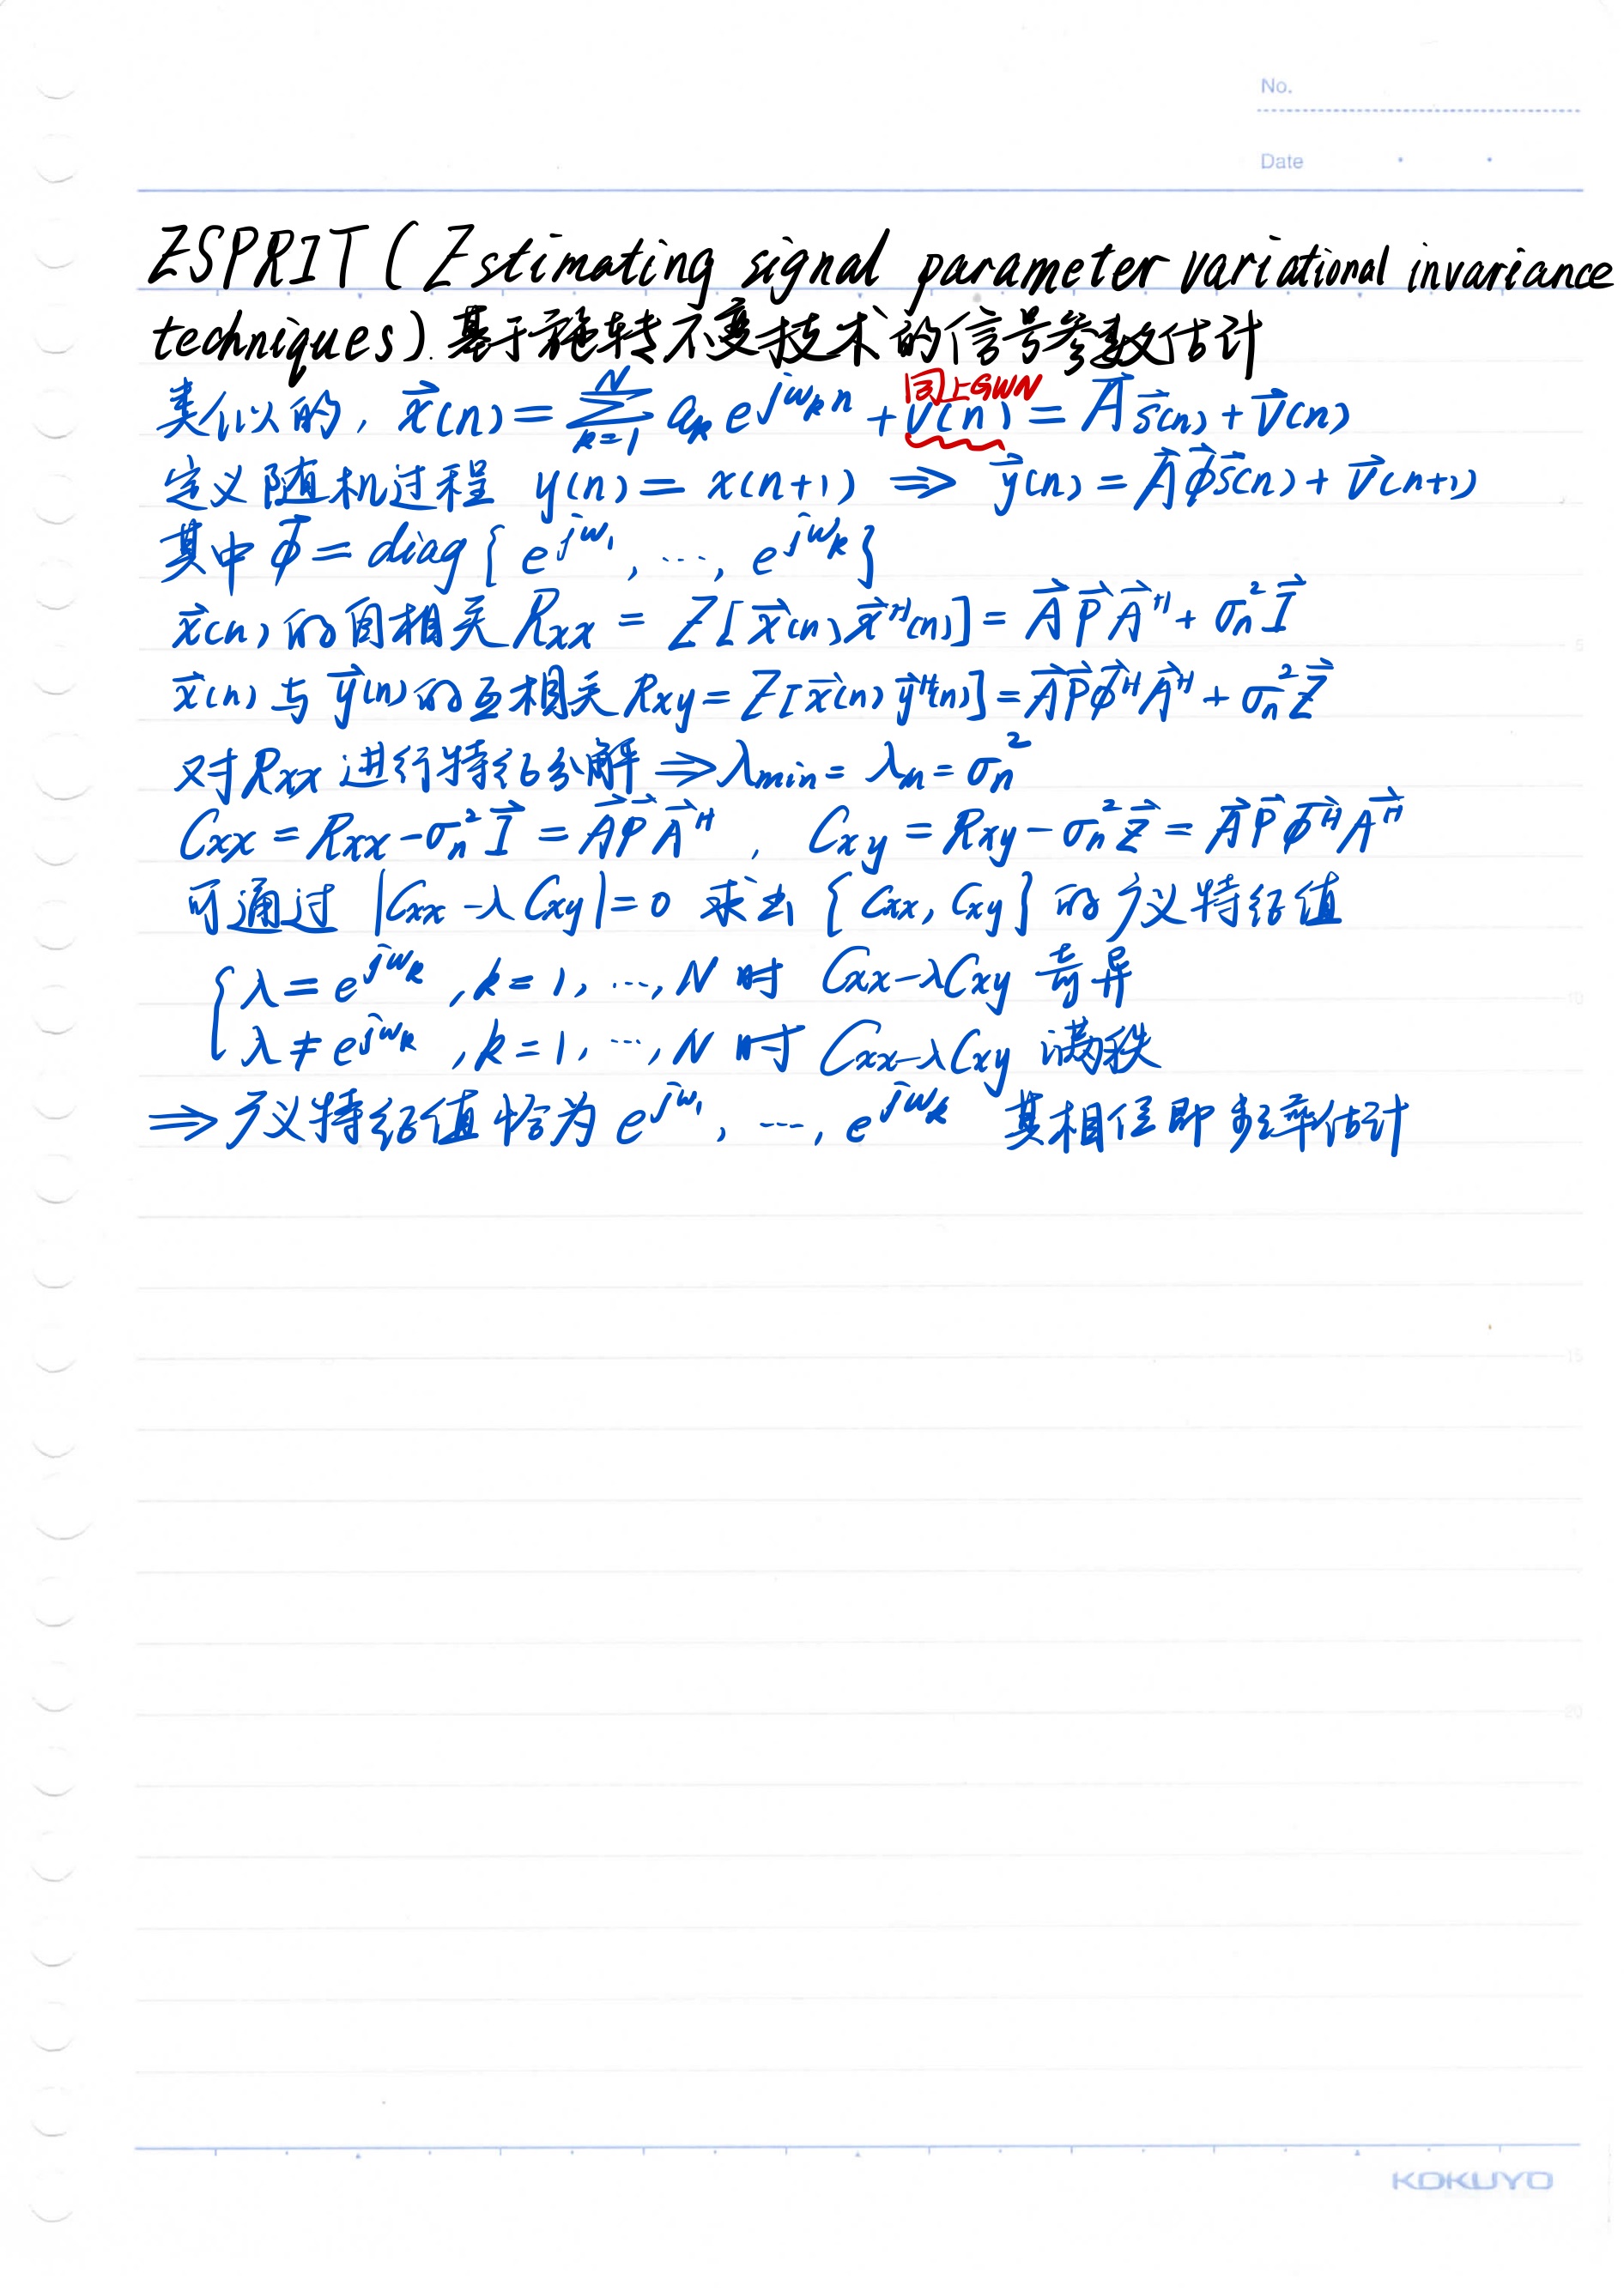 No.
Date
ESPRIT (Estimating signal parameter variational invariance
techniques). 基于旋转不变技术的信号参数估计
同上GWN
类似的, x⃗(n) = ∑_{k=1}^{N} a_k e^{jω_k n} + v(n) = A⃗ s⃗(n) + v⃗(n)
定义随机过程 y(n) = x(n+1) ⇒ y⃗(n) = A⃗ ϕ⃗ s⃗(n) + v⃗(n+1)
其中 ϕ⃗ = diag{ e^{jω_1}, ..., e^{jω_k} }
x⃗(n) 的自相关 R_xx = E[x⃗(n) x⃗^H(n)] = A⃗ P⃗ A⃗^H + σ_n^2 I⃗
x⃗(n) 与 y⃗(n) 的互相关 R_xy = E[x⃗(n) y⃗^H(n)] = A⃗ P⃗ ϕ⃗^H A⃗^H + σ_n^2 Z⃗
对 R_xx 进行特征分解 ⇒ λ_min = λ_m = σ_n^2
C_xx = R_xx − σ_n^2 I⃗ = A⃗ P⃗ A⃗^H, C_xy = R_xy − σ_n^2 Z⃗ = A⃗ P⃗ ϕ⃗^H A⃗^H
可通过 |C_xx − λ C_xy| = 0 求出 { C_xx, C_xy } 的广义特征值
{ λ = e^{jω_k}, k = 1, ..., N 时 C_xx − λ C_xy 奇异
λ ≠ e^{jω_k}, k = 1, ..., N 时 C_xx − λ C_xy 满秩
⇒ 广义特征值恰为 e^{jω_1}, ..., e^{jω_k} 其相位即频率估计
5
10
15
20
KOKUYO